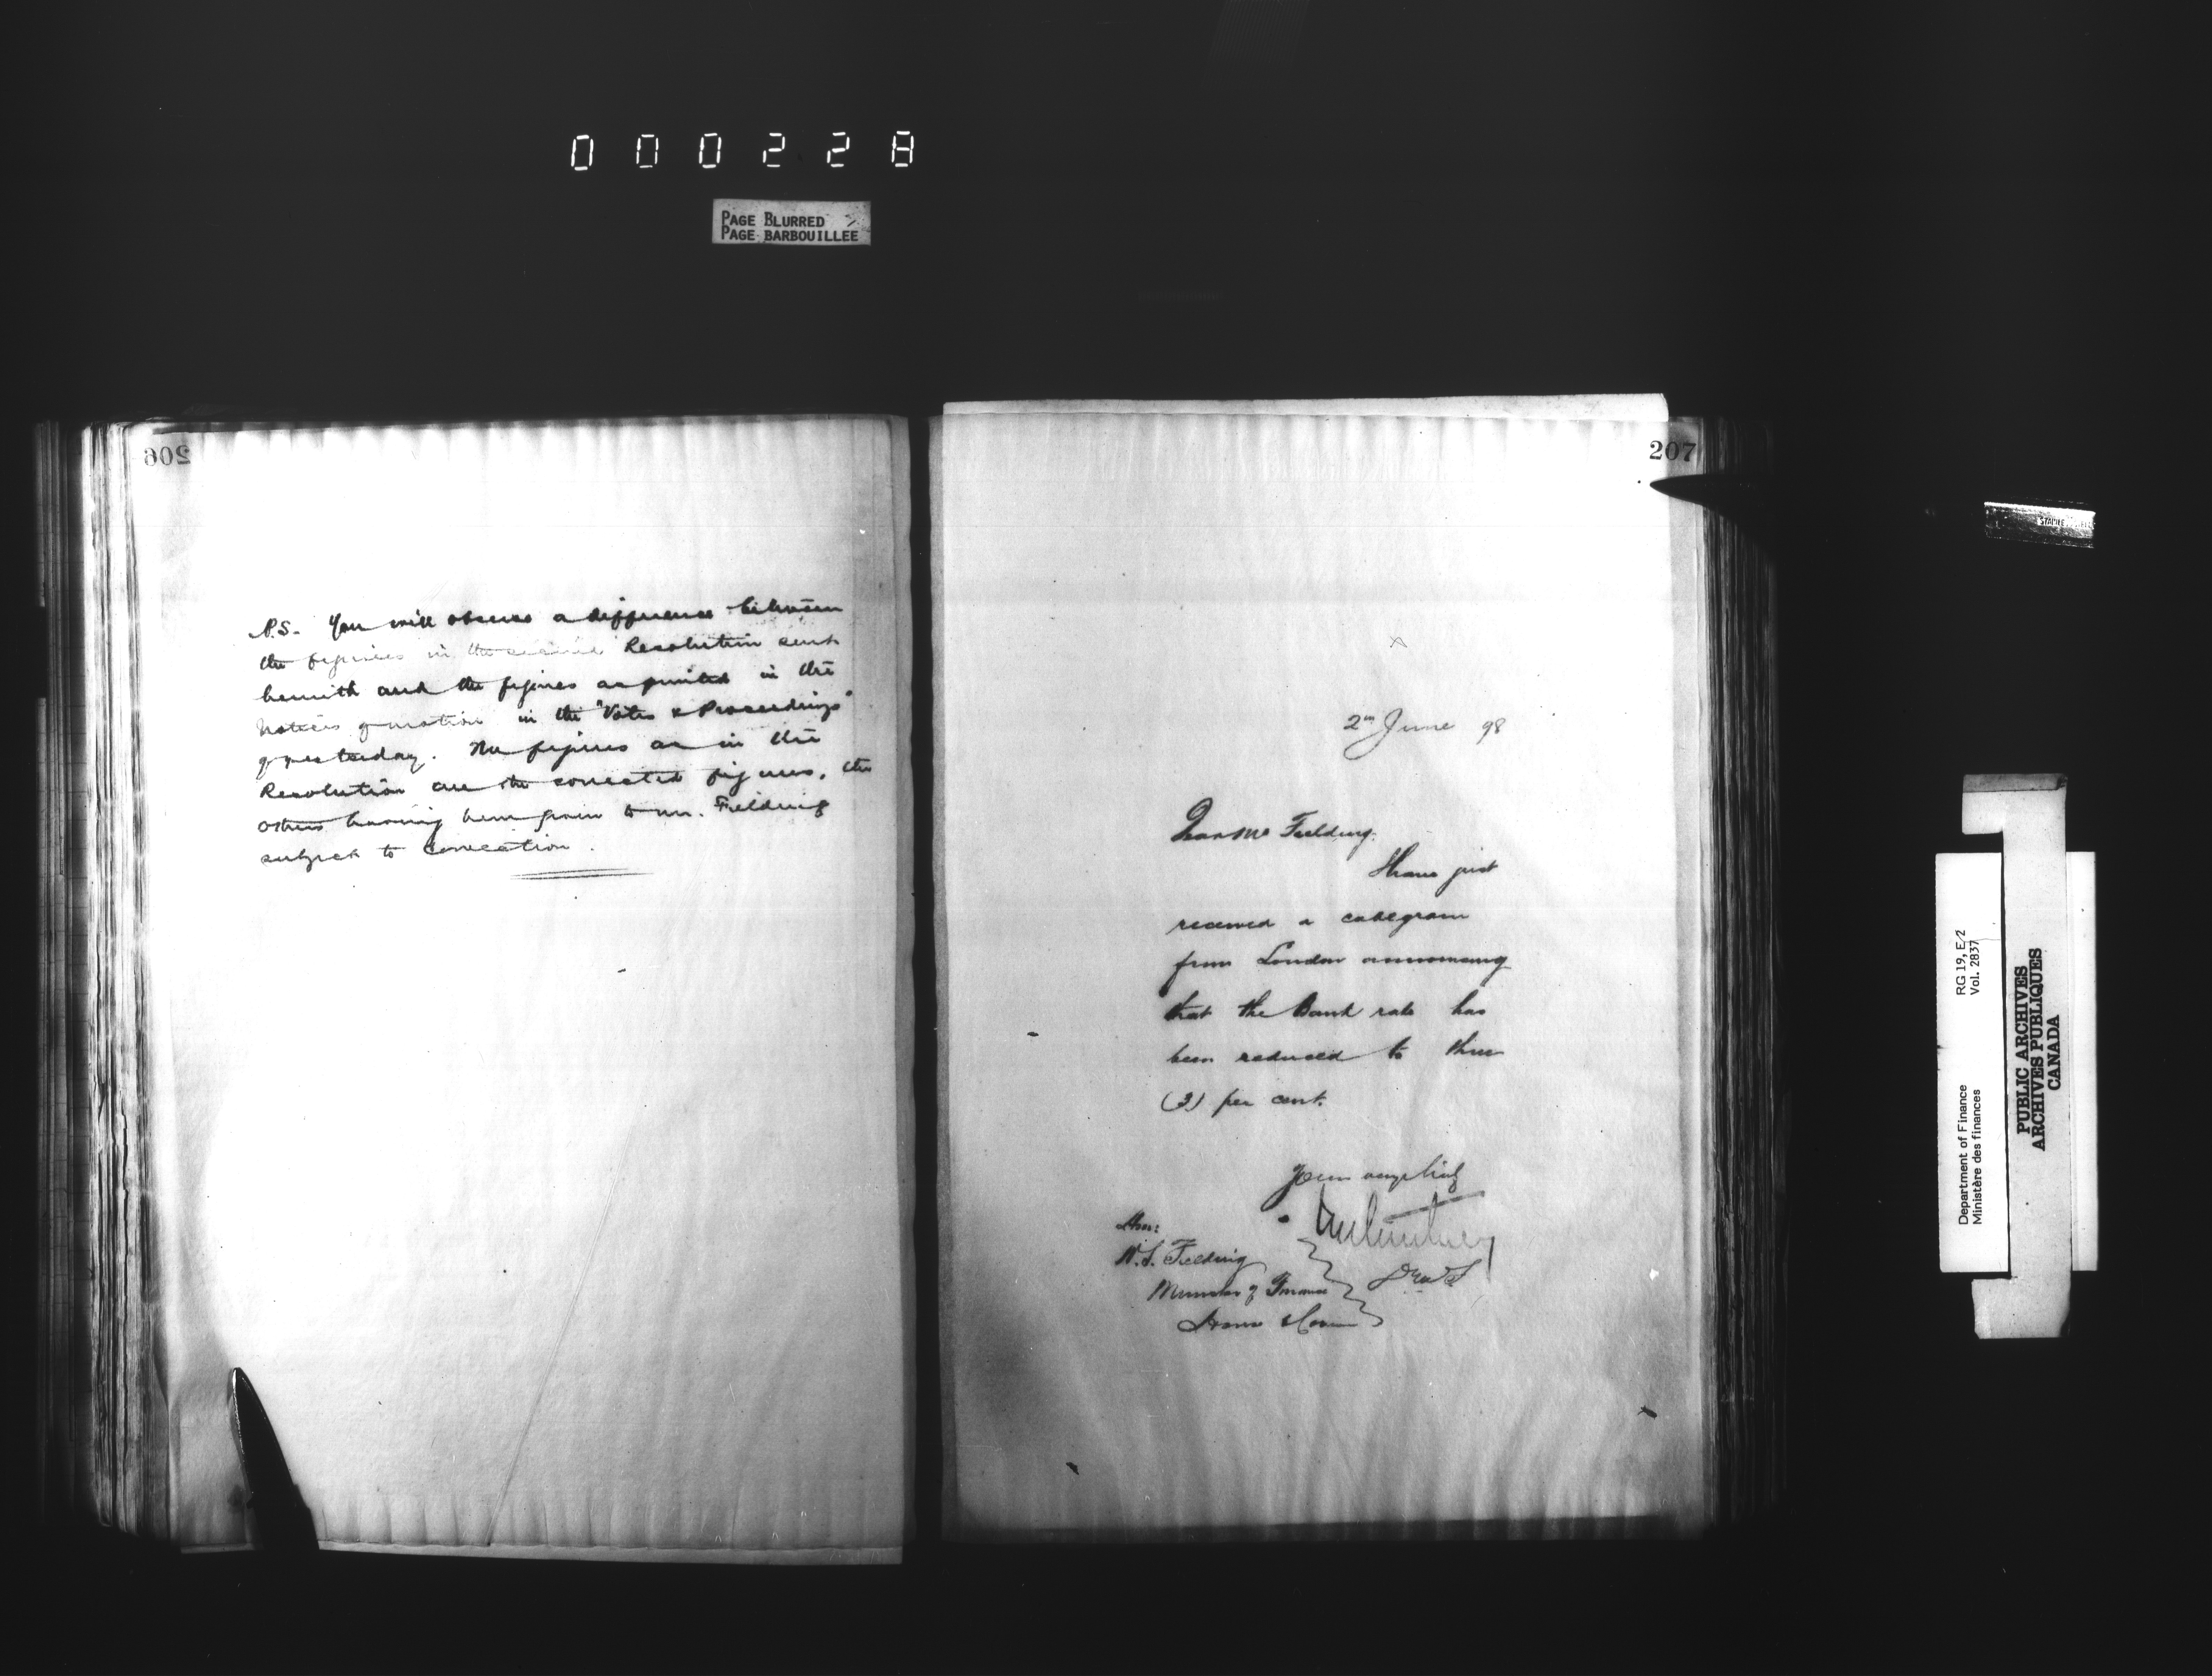 000228
PAGE BLURRED
PAGE BARBOUILLEE
206
P.S. You will observe a difference between
the figures in the second Resolution sent
herewith and the figures as printed in the
Notices of motion in the "Votes & Proceedings"
of yesterday. The figures as in the
Resolution are the corrected figures, the
others having been given to Mr. Fielding
subject to correction.
207
2nd June 98
Dear Mr Fielding.
I have just
received a cablegram
from London announcing
that the Bank rate has
been reduced to three
(3) per cent.
Yours very truly
Hon:
W.S. Fielding
Minister of Finance
House of Com
STANLEY
Department of Finance
Ministère des finances
RG 19, E 2
Vol. 2837
PUBLIC ARCHIVES
ARCHIVES PUBLIQUES
CANADA